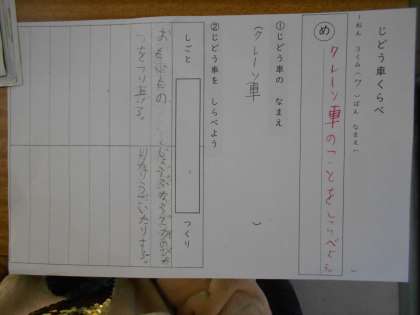 じどう車くらべ
一ねん 三くみ（ ）ばん なまえ（ ）
め クレーン車のことをしらべよう。
①じどう車の なまえ
（クレーン車 ）
②じどう車を しらべよう
しごと
つくり
おもいもの
をつり上げる。
じょうぶなうでが のび
たりうごいたりする。